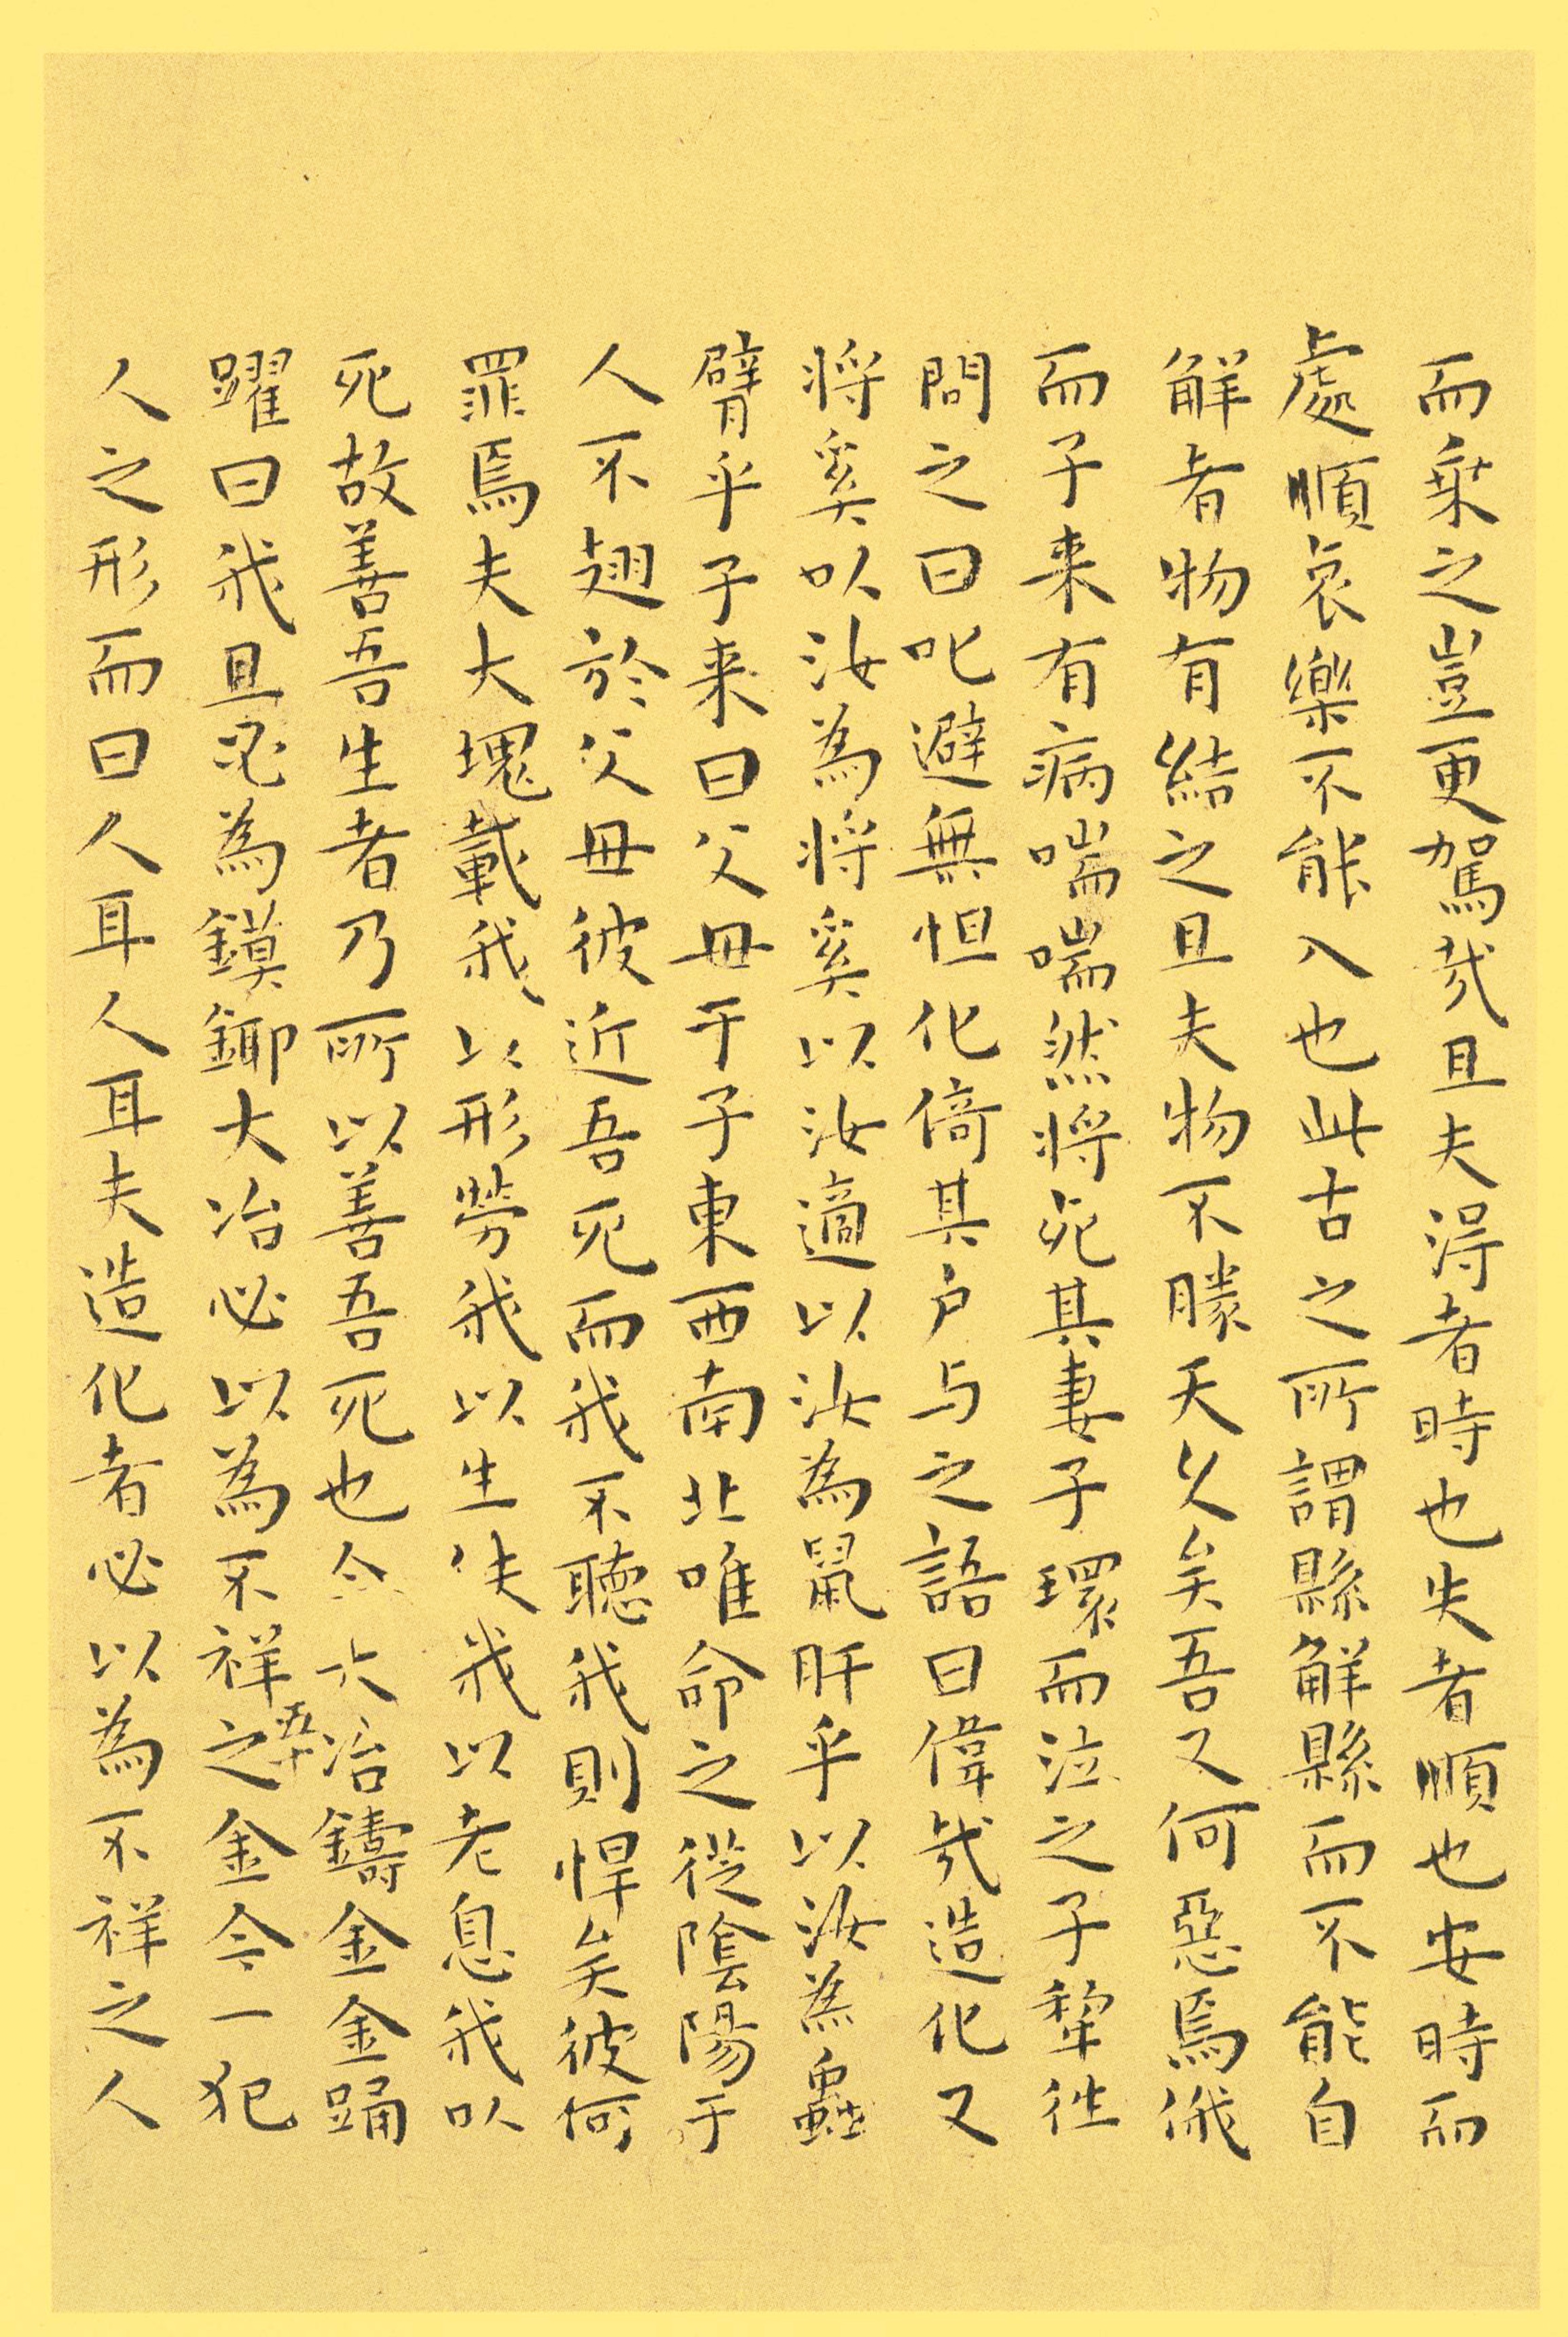 而乗之豈更駕哉且夫淂者時也失者順也安時而
處順哀樂不能入也此古之所謂縣解縣而不能自
解者物有結之且夫物不勝天久矣吾又何惡焉俄
而子来有病喘喘然将死其妻子環而泣之子犂徃
問之曰叱避無怛化倚其户与之語曰偉哉造化又
将奚以汝為将奚以汝適以汝為鼠肝乎以汝為蟲
臂乎子来曰父母于子東西南北唯命之從陰陽于
人不翅於父母彼近吾死而我不聽我則悍矣彼何
罪焉夫大塊載我以形勞我以生佚我以老息我以
死故善吾生者乃所以善吾死也今大冶鑄金金踊
躍曰我且必為鏌鋣大冶必以為不祥之金今一犯
五十
人之形而曰人耳人耳夫造化者必以為不祥之人